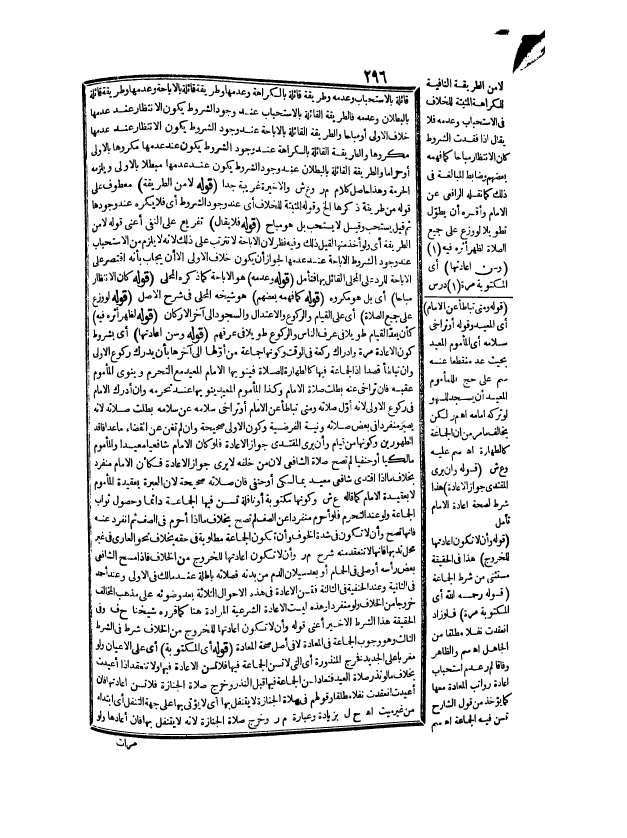 ٢٩٦
قائلة بالاستحباب وعدمه وطريقة قائلة بالكراهة وعدمها وطريقة قائلة بالاباحة وعدمها وطريقة قائلة
بالبطلان وعدمه فالطريقة القائلة بالاستحباب عند وجود الشروط يكون الانتظار عند عدمها
خلاف الاولى أو مباحا والطريقة القائلة بالاباحة عند وجود الشروط يكون الانتظار عند عدمها
مكروها والطريقة القائلة بالكراهة عند وجود الشروط يكون عند عدمها مكروها بالاولى
أو حراما والطريقة القائلة بالبطلان عند وجود الشروط يكون عند عدمها مبطلا بالاولى ويلزمه
الحرمة وهذا حاصل كلام م ر و ع ش والاخيرة غريبة جدا (قوله لا من الطريقة) معطوف على
قوله من طريقة ذكرها الخ وقوله المثبتة للخلاف أى عند وجود الشروط أى فلا يكره عند وجودها
ثم قيل يستحب وقيل لا يستحب بل هو مباح (قوله فلا يقال) تفريع على النفى أعنى قوله لا من
الطريقة أى ولو أخذ منها القيل ذلك وفيه نظر لان الاباحة لا تترتب على ذلك لانه لا يلزم من الاستحباب
عند وجود الشروط الاباحة عند عدمها لجواز أن يكون خلاف الاولى الا أن يجاب بأنه اقتصر على
الاباحة للرد على المحلى القائل بها فتأمل (قوله وعدمه) هو الاباحة كما ذكره المحلى (قوله كان الانتظار
مباحا) أى بل هو مكروه (قوله كما فهمه بعضهم) هو شيخه المحلى فى شرح الاصل (قوله لو وزع
على جميع الصلاة) أى على القيام والركوع والاعتدال والسجود الى آخر الاركان (قوله لظهر أثره فيه)
كأن يعد القيام طويلا فى عرف الناس والركوع طويلا فى عرفهم (قوله وسن اعادتها) أى بشروط
كون الاعادة مرة وادراك ركعة فى الوقت وكونها جماعة من أولها الى آخرها بأن يدرك ركوع الاولى
وان تباطأ قصدا اذ الجماعة فيها كالطهارة للصلاة فينوى بها الامام المعيد مع التحرم وينوى المأموم
عقبه فان تراخى عنه بطلت صلاة الامام وكذا المأموم المعيد ينويها عند تحرمه وان أدرك الامام
فى ركوع الاولى لانه أول صلاته ومتى تباطأ عن الامام أو تراخى سلامه عن سلامه بطلت صلاته لانه
يصير منفردا فى بعض صلاته ونية الفرضية وكون الاولى صحيحة وان لم تغن عن القضاء ما عدا فاقد
الطهورين وكونها من قيام وأن يرى المقتدى جواز الاعادة فلو كان الامام شافعيا معيدا والمأموم
مالكيا أو حنفيا لم تصح صلاة الشافعى لان من خلفه لا يرى جواز الاعادة فكأن الامام منفرد
بخلاف ما اذا اقتدى شافعى معيد بمالكى أو حنفى فان صلاته صحيحة لان العبرة بعقيدة المأموم
لا بعقيدة الامام كما قاله ع ش وكونها مكتوبة أو نافلة تسن فيها الجماعة دائما وحصول ثواب
الجماعة ولو عند التحرم فلو أحرم منفردا عن الصف لم تصح بخلاف ما اذا أحرم فى الصف ثم انفرد عنه
فانها تصح وأن لا تكون فى شدة الخوف وأن تكون الجماعة مطلوبة فى حقه بخلاف نحو العارى فى غير
محل ندبها فانها لا تنعقد منه شرح م ر وأن لا تكون اعادتها للخروج من الخلاف فاذا مسح الشافعى
بعض رأسه أو صلى فى الحمام أو بعد سيلان الدم من بدنه فصلاته باطلة عند مالك فى الاولى وعند أحمد
فى الثانية وعند الحنفية فى الثالثة فتسن الاعادة فى هذه الاحوال الثلاثة بعد وضوئه على مذهب المخالف
خروجا من الخلاف ولو منفردا وهذه ليست الاعادة الشرعية المرادة هنا كما قرره شيخنا ح ف وفى
الحقيقة هذا الشرط الاخير أعنى قوله وأن لا تكون اعادتها للخروج من الخلاف شرط فى الشرط
الثالث وهو وجوب الجماعة فى المعادة لا فى أصل صحة المعادة (قوله أى المكتوبة) أى على الاعيان ولو
مغربا على الجديد فخرج المنذورة أى التى لا تسن الجماعة فيها فلا تسن الاعادة فيها ولا تنعقد اذا أعيدت
بخلاف ما لو نذر صلاة العيد فتعاد لسن الجماعة فيها قبل النذر وخرج صلاة الجنازة فلا تسن اعادتها فان
أعيدت انعقدت نفلا مطلقا وقولهم فى صلاة الجنازة لا يتنفل بها أى لا يؤتى بها على جهة التنفل أى ابتداء
من غير ميت اه ح ل بزيادة وعبارة م ر وخرج صلاة الجنازة لانه لا يتنفل بها فان أعادها ولو
مرات
لا من الطريقة النافية
للكراهة المثبتة للخلاف
فى الاستحباب وعدمه فلا
يقال اذا فقدت الشروط
كان الانتظار مباحا كما فهمه
بعضهم بضابط المبالغة فى
ذلك كما نقله الرافعى عن
الامام وأقره أن يطول
تطويلا لو وزع على جميع
الصلاة لظهر أثره فيه (١)
(وسن اعادتها) أى
المكتوبة مرة (١) درس
(قوله ومتى تباطأ عن الامام)
أى المعيد وقوله أو تراخى
سلامه أى المأموم المعيد
بحيث عد منقطعا عنه
سم على حج للمأموم
المعيد أن يسجد للسهو
لو تركه امامه اه م ر لكن
يخالف ما مر من أن الجماعة
كالطهارة اه سم عليه
وع ش (قوله وأن يرى
المقتدى جواز الاعادة) هذا
شرط لصحة اعادة الامام
تأمل
(قوله وأن لا تكون اعادتها
للخروج) هذا فى الحقيقة
مستثنى من شرط الجماعة
(قوله رحمه الله أى
المكتوبة مرة) فلو زاد
انعقدت نفلا مطلقا من
الجاهل اه سم والظاهر
وفاقا لم ر عدم استحباب
اعادة رواتب المعادة معها
كما يؤخذ من قول الشارح
تسن فيه الجماعة اه سم